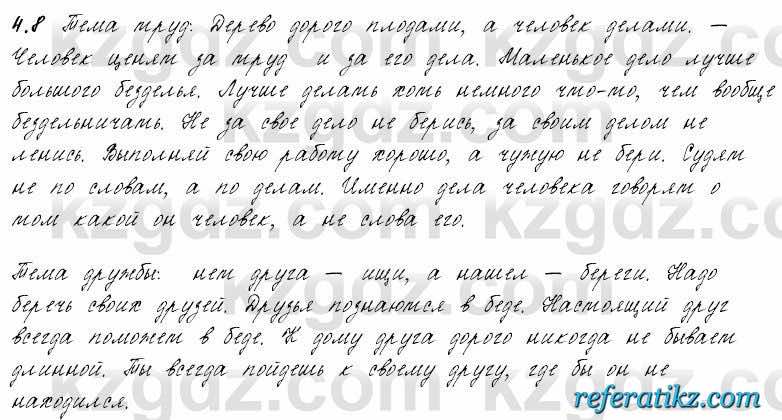 4.8 Тема труд: Дерево дорого плодами, а человек делами. –
Человек ценят за труд и за его дела. Маленькое дело лучше
большого безделья. Лучше делать хоть немного что-то, чем вообще
бездельничать. Не за свое дело не берись, за своим делом не
ленись. Выполняй свою работу хорошо, а чужую не бери. Судят
не по словам, а по делам. Именно дела человека говорят о
том какой он человек, а не слова его.
Тема дружбы: нет друга – ищи, а нашел – береги. Надо
беречь своих друзей. Друзья познаются в беде. Настоящий друг
всегда поможет в беде. К дому друга дорого никогда не бывает
длинной. Ты всегда пойдешь к своему другу, где бы он не
находился.
referatikz.com